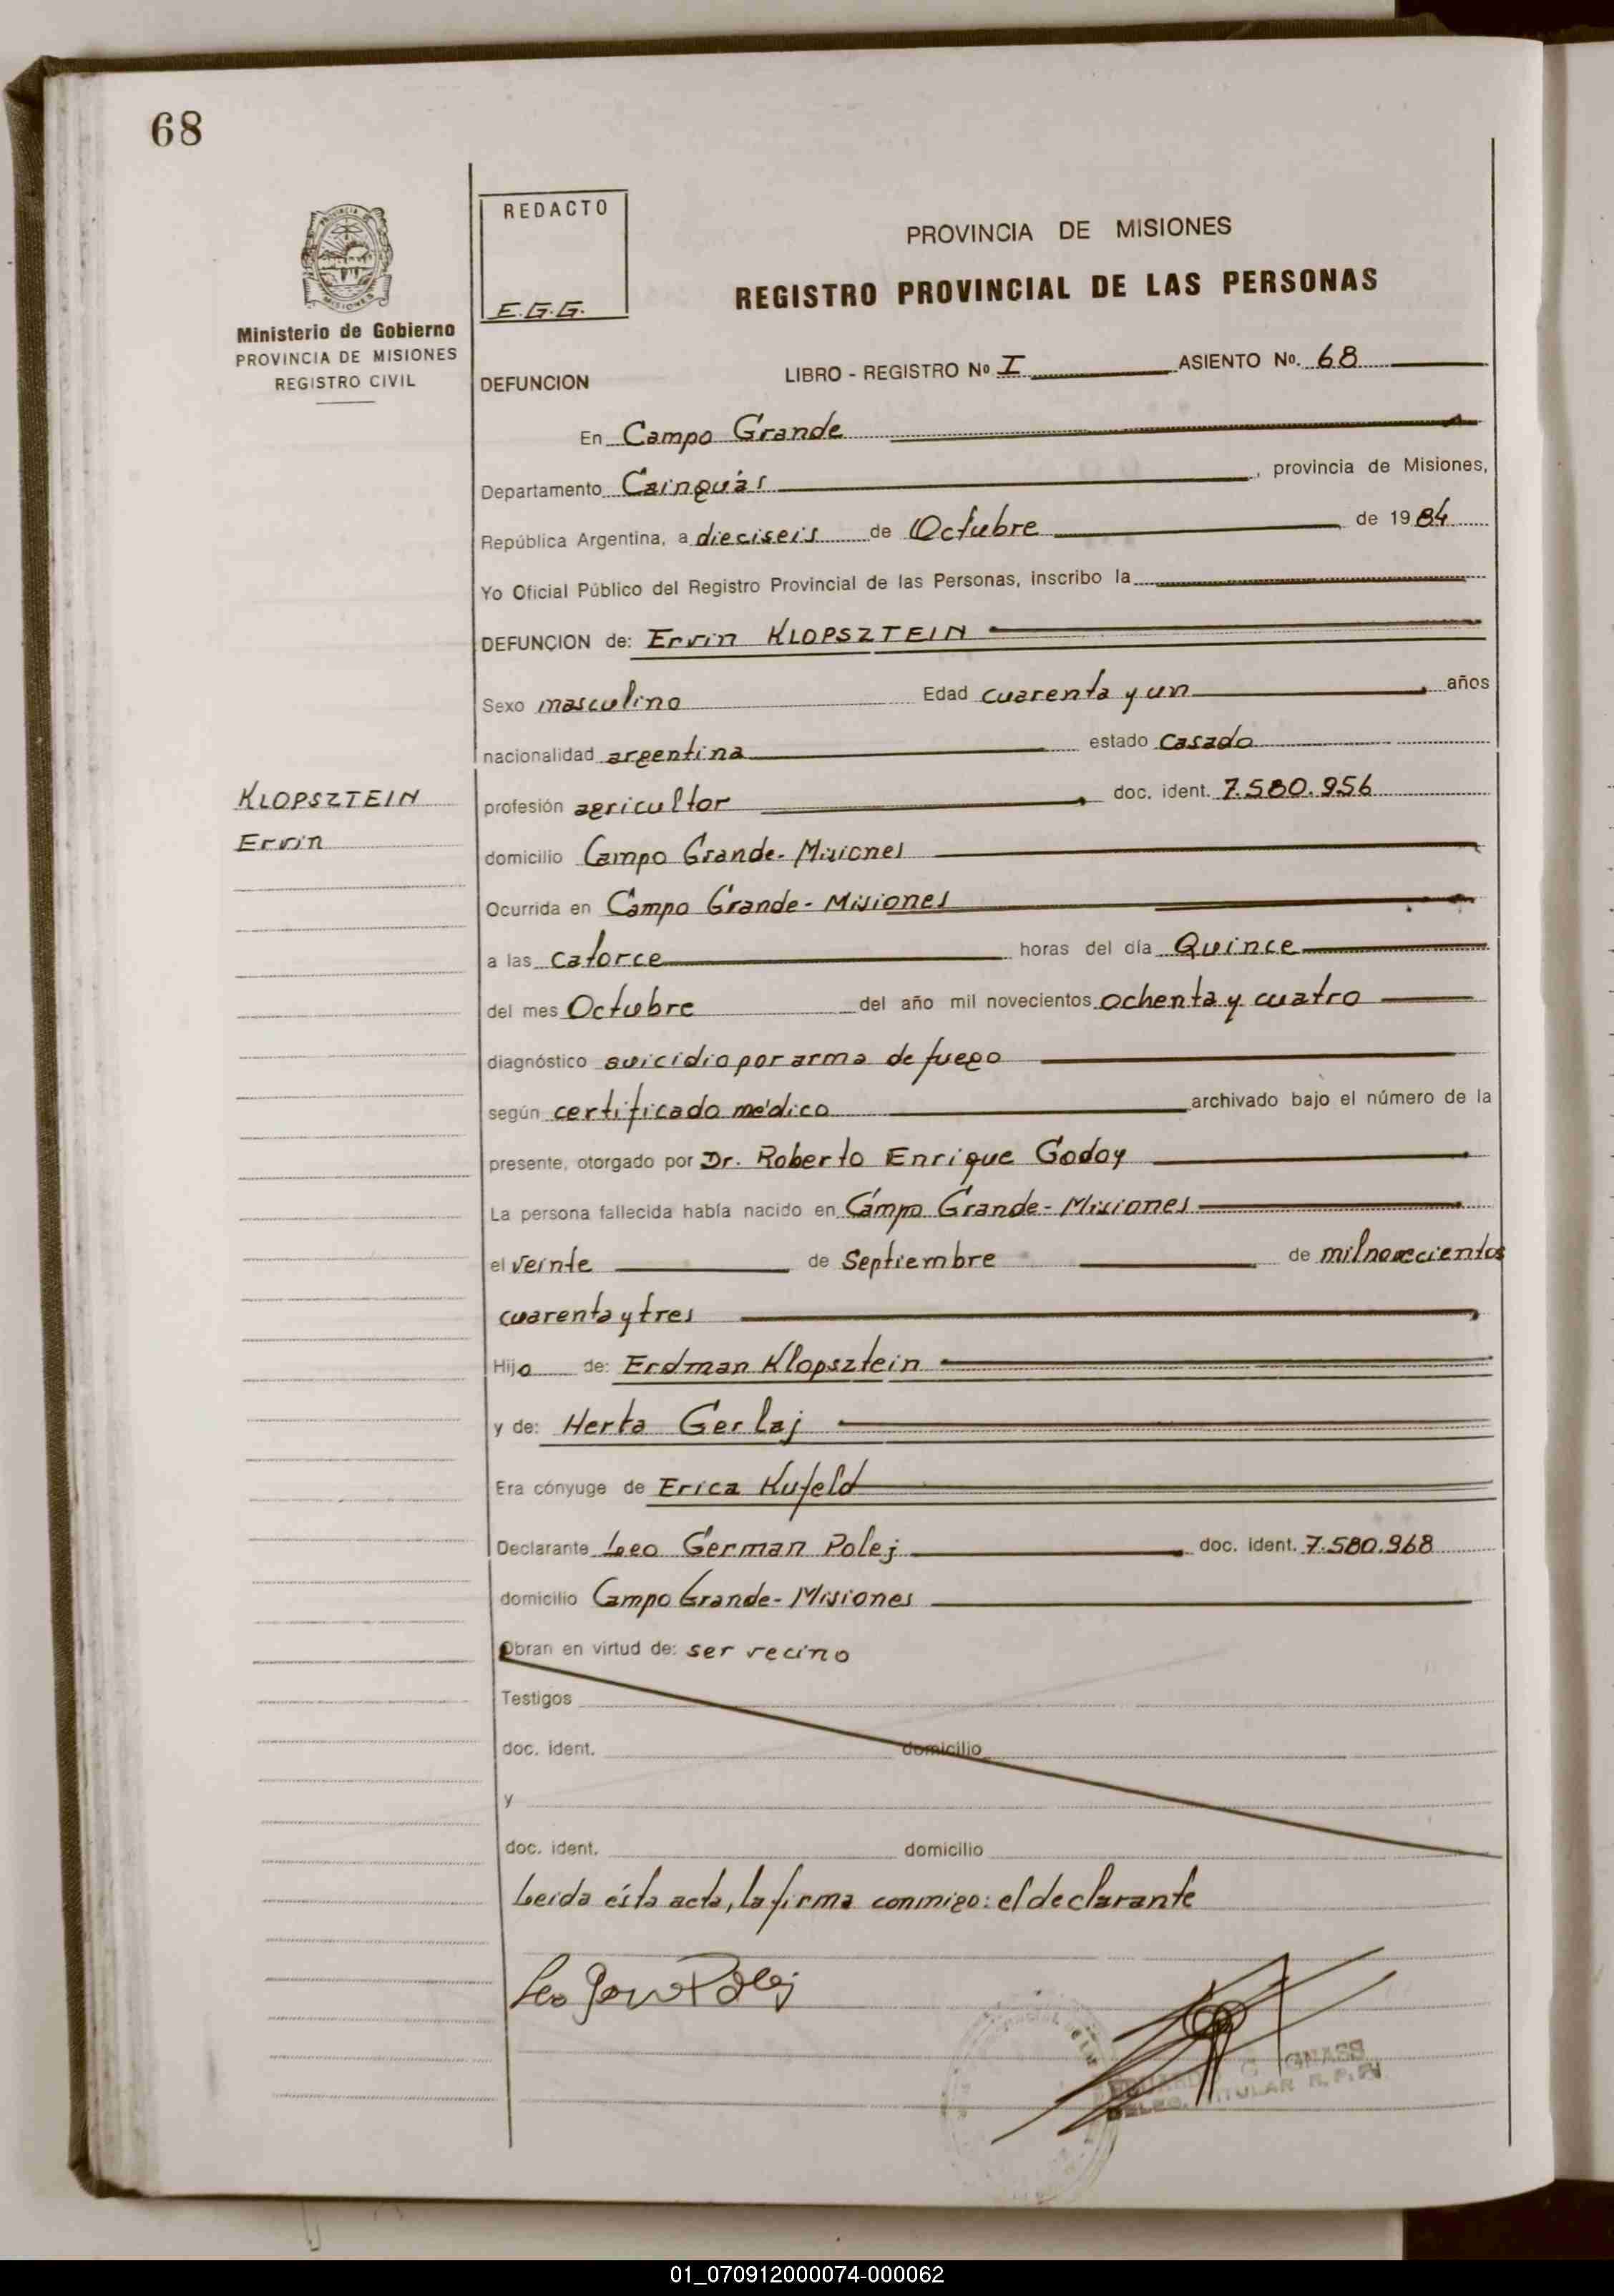 68
REDACTO
E.G.G.
PROVINCIA DE MISIONES
REGISTRO PROVINCIAL DE LAS PERSONAS
Ministerio de Gobierno
PROVINCIA DE MISIONES
REGISTRO CIVIL
DEFUNCION LIBRO - REGISTRO Nº I ASIENTO Nº. 68
En Campo Grande
Departamento Cainguás, provincia de Misiones,
República Argentina, a dieciseis de Octubre de 1984
Yo Oficial Público del Registro Provincial de las Personas, inscribo la
DEFUNCION de: Ervin KLOPSZTEIN
Sexo masculino Edad cuarenta y un años
nacionalidad argentina estado casado
KLOPSZTEIN
Ervin
profesión agricultor doc. ident. 7.580.956
domicilio Campo Grande - Misiones
Ocurrida en Campo Grande - Misiones
a las catorce horas del día Quince
del mes Octubre del año mil novecientos ochenta y cuatro
diagnóstico suicidio por arma de fuego
según certificado médico archivado bajo el número de la
presente, otorgado por Dr. Roberto Enrique Godoy
La persona fallecida había nacido en Campo Grande - Misiones
el veinte de Septiembre de mil novecientos
cuarenta y tres
Hijo de: Erdman Klopsztein
y de: Herta Gerlaj
Era cónyuge de Erica Kufeld
Declarante Leo German Polej doc. ident. 7.580.968
domicilio Campo Grande - Misiones
Obran en virtud de: ser vecino
Testigos
doc. ident. domicilio
y
doc. ident. domicilio
Leida ésta acta, la firma conmigo: el declarante
Leo German Polej
DELEG. TITULAR R.P.P.
01_070912000074-000062